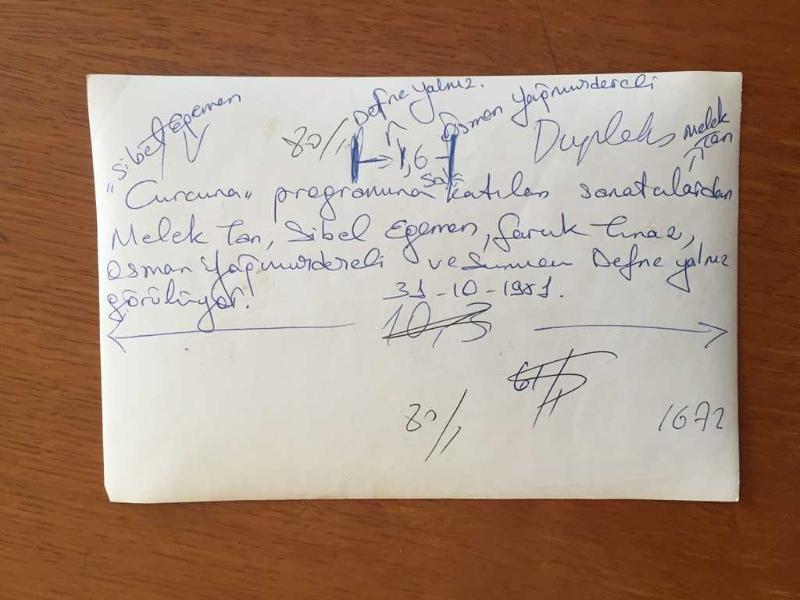 Defne Yalnız.
Osman Yağmurdereli
Sibel Egemen
80/1
1,6
Dupleks
Melek Tan
"Curcuna" programına katılan sanatcılardan
Melek Tan, Sibel Egemen, Faruk Tınaz,
Osman Yağmurdereli ve Sunucu Defne Yalnız
görülüyor!
31-10-1981.
10,3
80/1
1672